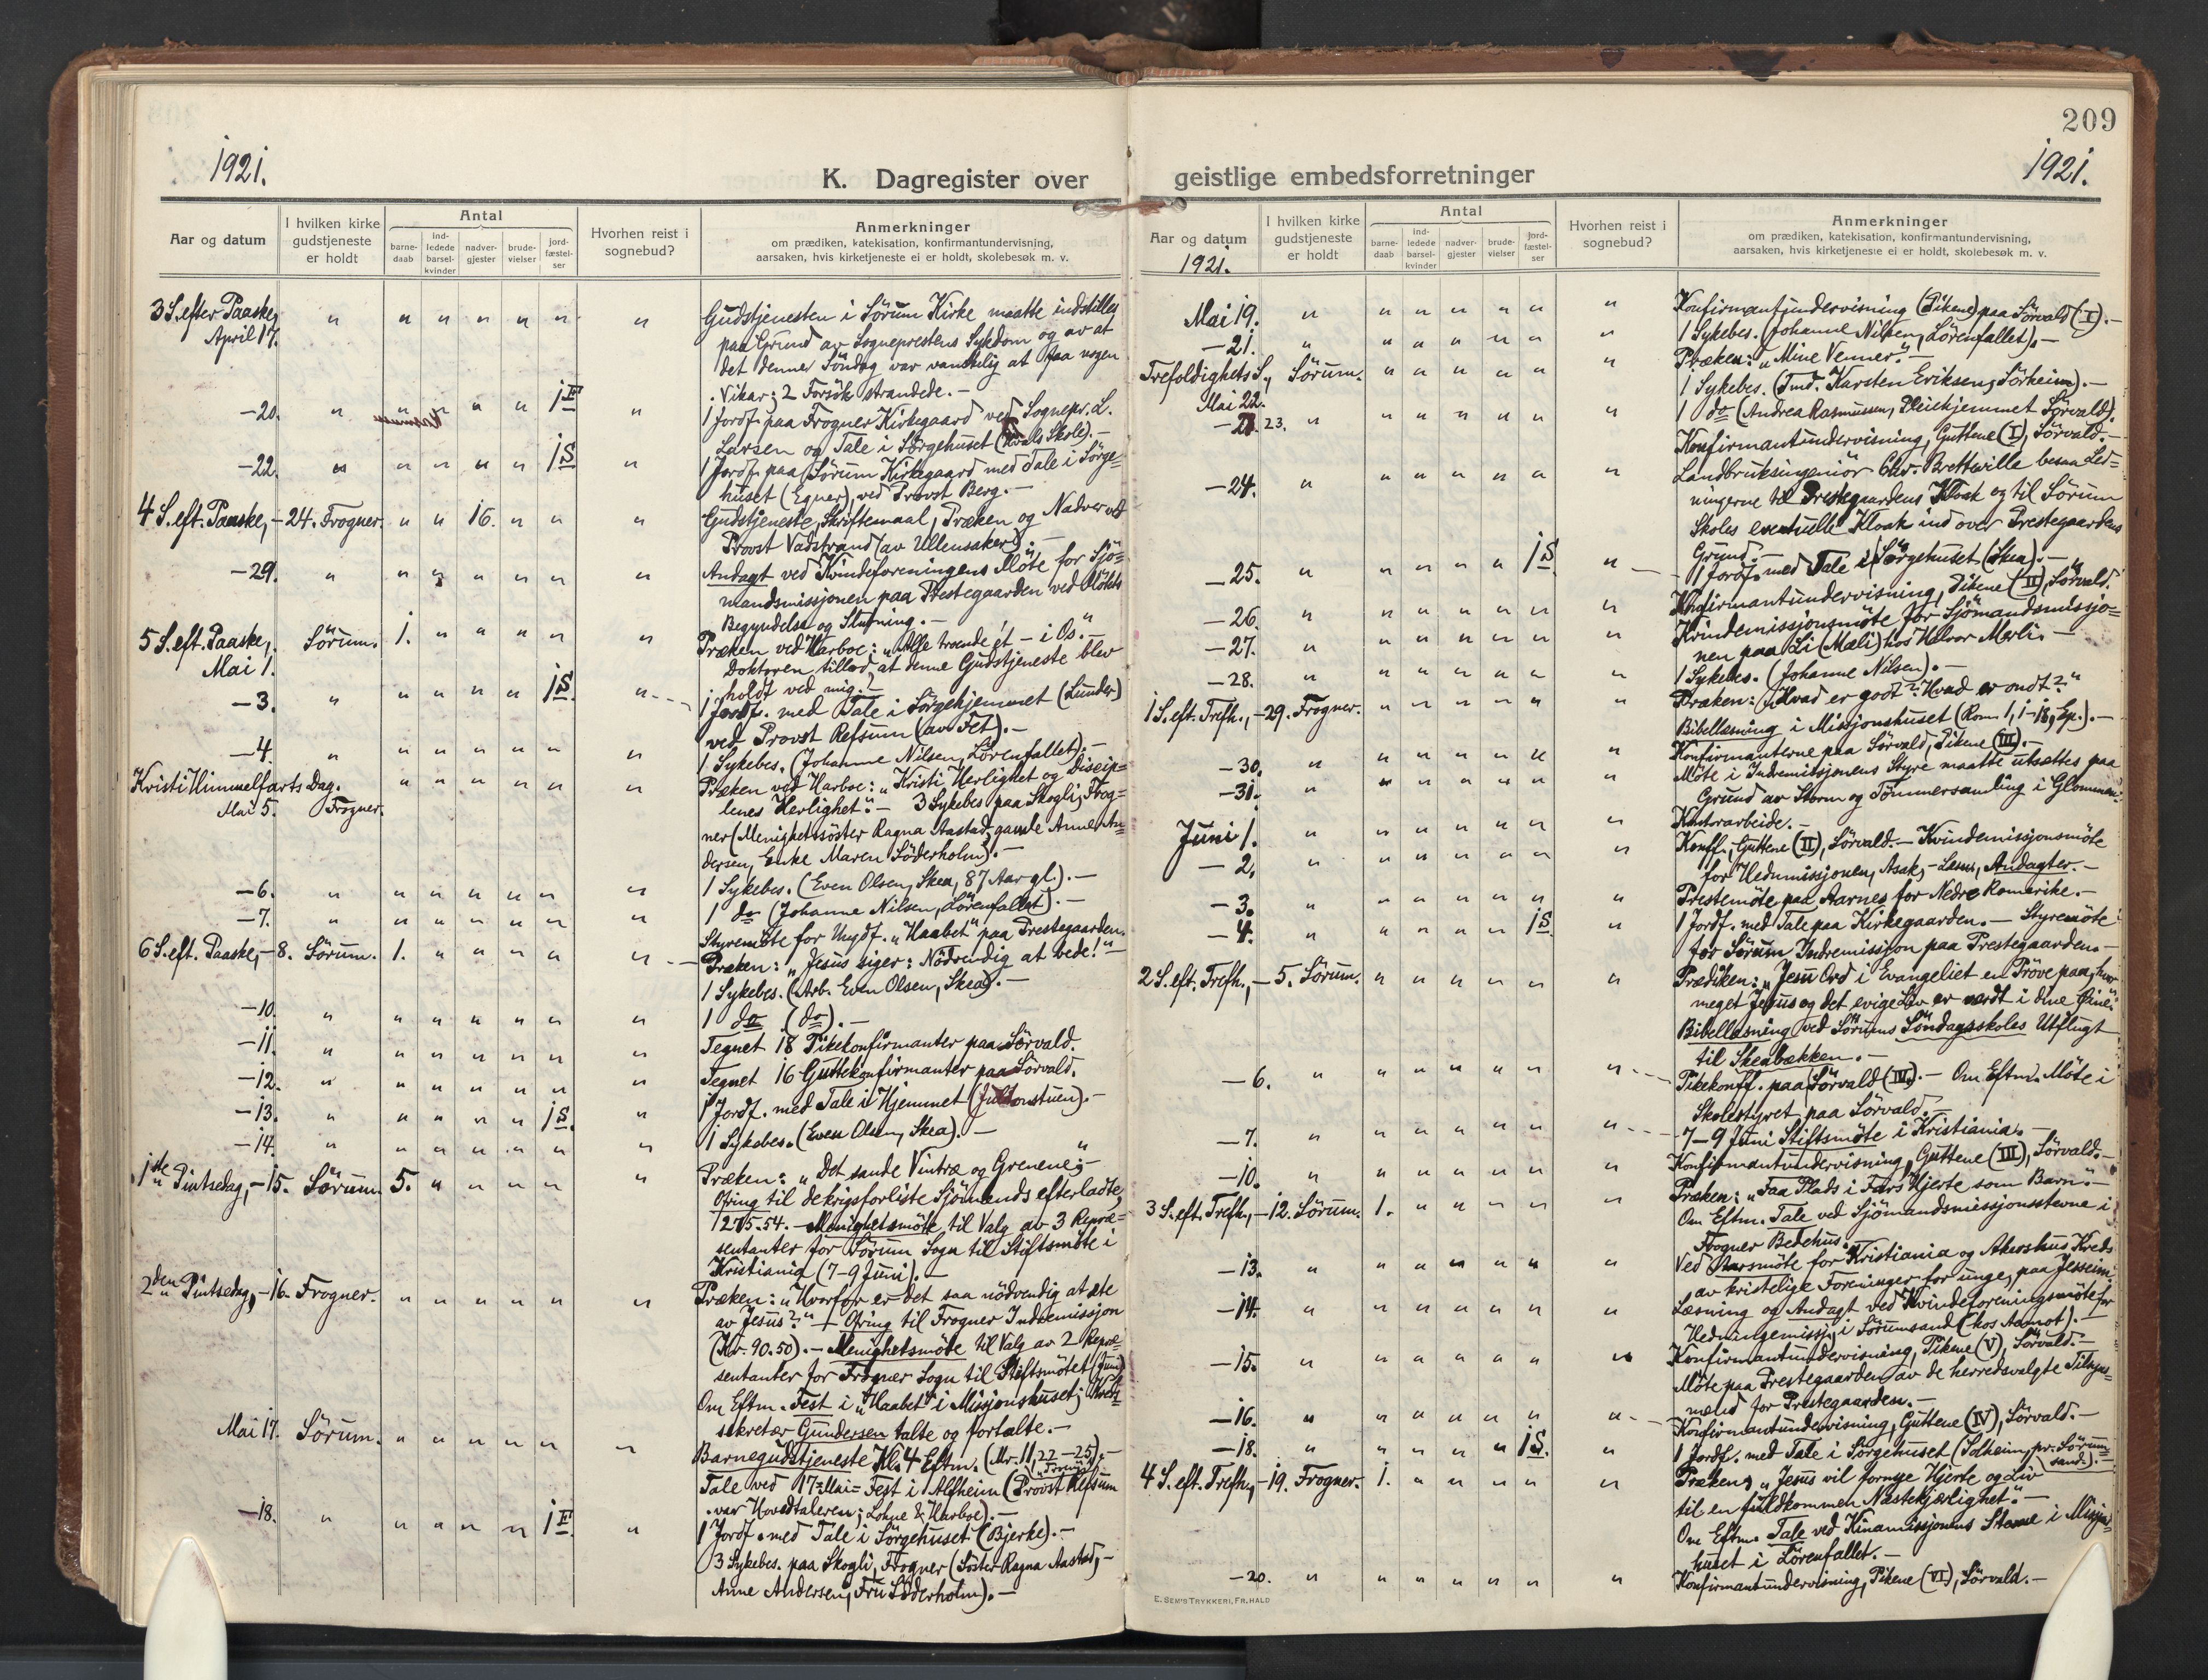 209
1921.
1921.
K. Dagregister over
geistlige embedsforretninger
Aar og datum
I hvilken kirke gudstjeneste er holdt
Antal
barnedaab
indledede barselkvinder
nadvergjester
brudevielser
jordfæstelser
Hvorhen reist i sognebud?
Anmerkninger
om prædiken, katekisation, konfirmantundervisning,
aarsaken, hvis kirketjeneste ei er holdt, skolebesøk m. v.
3 S. efter Paaske, April 17. " " " " " " " Gudstjenesten i Sörum Kirke maatte indstilles
paa Grund av Sogneprestens Sykdom og av at
det denne Söndag var vanskelig at faa nogen
Vikar; 2 Forsök strandede.-
-20. " " " " " 1 F " 1 Jordf. paa Frogner Kirkegaard ved Sognepr. L.
Larsen og Tale i Sörgehuset (Kvals Skole).-
-22. " " " " " 1 S " 1 Jordf. paa Sörum Kirkegaard med Tale i Sörge=
huset (Egner), ved Provst Berg.-
4 S. eft. Paaske, -24. Frogner. " " 16. " " " Gudstjeneste, Skriftemaal, Præken og Nadver ved
Provst Vadstrand (av Ullensaker).-
-29. " " " " " " " Andagt ved Kvindeforeningens Möte for Sjö=
mandsmissjonen paa Prestegaarden ved Mötets
Begyndelse og Slutning.-
5 S. eft. Paaske, Mai 1. Sörum. 1. " " " " " Præken ved Harboe: "Alle troende ét - i Os."-
Doktoren tillod, at denne Gudstjeneste blev
holdt ved mig.-
-3. " " " " " 1 S. " 1 Jordf. med Tale i Sörgehjemmet (Lunder)
ved Provst Refsum (av Fet).-
-4. " " " " " " " 1 Sykebes. (Johanne Nilsen, Lörenfallet).-
Kristi Himmelfarts Dag. Mai 5. Frogner. " " " " " " Præken ved Harboe: "Kristi Herlighet og Discip=
lenes Herlighet".- 3 Sykebes. paa Skogli, Frog=
ner (Menighetssöster Ragna Aastad, gamle Anne An=
dersen, Enke Maren Söderholm).-
-6. " " " " " " " 1 Sykebes. (Even Olsen, Skea, 87 Aar gl.).-
-7. " " " " " " " 1 do (Johanne Nilsen, Lörenfallet).-
Styremöte for Ungdf. "Haabet" paa Prestegaarden.
6 S. eft. Paaske, -8. Sörum. 1. " " " " " Præken: "Jesus siger: Nödvendig at bede!"-
1 Sykebes. (Arb. Even Olsen, Skea).-
-10. " " " " " " " 1 do (do).-
-11. " " " " " " " Tegnet 18 Pikekonfirmanter paa Sörvald.
-12. " " " " " " " Tegnet 16 Guttekonfirmanter paa Sörvald.
-13. " " " " " 1 S. " 1 Jordf. med Tale i Hjemmet
-14. " " " " " " " 1 Sykebes. (Even Olsen, Skea).-
1ste Pintsedag, -15. Sörum 5. " " " " " Præken: "Det sande Vintræ og Grenene".-
Ofring til de krigsforliste Sjömænds efterladte,
1275.54.- Menighetsmöte til Valg av 3 Repræ=
sentanter for Sörum Sogn til Stiftsmöte i
Kristiania (7-9 Juni).-
2den Pintsedag, -16. Frogner. " " " " " " Præken: "Hvorfor er det saa nödvendig at æte
av Jesus?" - Ofring til Frogner Indremissjon
(Kr. 90.50).- Menighetsmöte til Valg av 2 Repræ=
sentanter for Frogner Sogn til Stiftsmötet (Juni)
Om Eftm. Fest i "Haabet" i Missjonshuset; Kreds
sekretær Gundersen talte og fortalte.-
Mai 17. Sörum. " " " " " " Barnegudstjeneste Kl. 4 Eftm. (Mr. 11,22-25).-
Tale ved 17=Mai=Fest i Alfheim (Provst Refsum
var Hovedtaleren; Lohne & Harboe).-
-18. " " " " " 1 F. " 1 Jordf. med Tale i Sörgehuset (Bjerke).-
3 Sykebes. paa Skogli, Frogner (Söster Ragna Aastad,-
Anne Andersen, Fru Söderholm).-
Aar og datum
1921.
I hvilken kirke gudstjeneste er holdt
Antal
barnedaab
indledede barselkvinder
nadvergjester
brudevielser
jordfæstelser
Hvorhen reist i sognebud?
Anmerkninger
om prædiken, katekisation, konfirmantundervisning,
aarsaken, hvis kirketjeneste ei er holdt, skolebesøk m. v.
Mai 19. " " " " " " " Konfirmantundervisning (Pikene) paa Sörvald (I).-
-21. " " " " " " " 1 Sykebes. (Johanne Nilsen, Lörenfallet).-
Trefoldighets S., Mai 22. Sörum. " " " " " " Præken: "Mine Venner".-
1 Sykebes. (Tmd. Karsten Eriksen, Sörheim).-
1 do (Andrea Rasmussen, Pleiehjemmet Sörvald).
-23. " " " " " " " Konfirmantundervisning, Guttene (I), Sörvald.-
-24. " " " " " " " Landbruksingeniör Chr. Bretteville besaa Led=
ningerne til Prestegaardens Kloak og til Sörum
Skoles eventuelle Kloak ind over Prestegaardens
Grund.-
-25. " " " " " 1 S. " 1 Jordf. med Tale i Sörgehuset (Skea).-
-26. " " " " " " " Konfirmantundervisning, Pikene (II), Sörvald.
-27. " " " " " " " Kvindemissjonsmöte for Sjömandsmissjo=
nen paa Li (Mæli) hos Halvor Merli.-
-28. " " " " " " " 1 Sykebes. (Johanne Nilsen).-
1 S. eft. Trefh., -29. Frogner. " " " " " " Præken: "Hvad er godt? Hvad er ondt?"
Bibellæsning i Missjonshuset (Rom. 1, 1-18, Ep.).-
-30. " " " " " " " Konfirmanterne paa Sörvald, Pikene (III).-
-31. " " " " " " " Möte i Indremissjonens Styre maatte utsættes paa
Grund av Storm og Tömmersamling i Glommen.-
Juni 1. " " " " " " " Kontorarbeide.-
-2. " " " " " " " Konff., Guttene (II), Sörvald.- Kvindemissjonsmöte
for Hednmissjonen, Asak, - Læsn., Andagter.-
-3. " " " " " " " Prestemöte paa Aarnes for Nedre Romerike.-
-4. " " " " " 1 S. " 1 Jordf. med Tale paa Kirkegaarden.- Styremöte
for Sörum Indremissjon paa Prestegaarden.-
2 S. eft. Trefh., -5. Sörum. " " " " " " Prædiken: "Jesu Ord i Evangeliet en Pröve paa, hvor
meget Jesus og det evige Liv er værdt i dine Öine".
Bibellæsning ved Sörums Söndagsskoles Utflugt
til Skeabækken.-
-6. " " " " " " " Pikekonff. paa Sörvald (IV).- Om Eftm. Möte i
Skolestyret paa Sörvald.-
-7. " " " " " " " 7-9 Juni Stiftsmöte i Kristiania.-
-10. " " " " " " " Konfirmantundervisning, Guttene (III), Sörvald.-
3 S. eft. Trefh., -12. Sörum. 1. " " " " " Præken: "Faa Plads i Fars Hjerte som Barn".-
Om Eftm. Tale ved Sjömandsmissjonsstevne i
Frogner Bedehus.
-13. " " " " " " " Ved Aarsmöte for Kristiania og Akershus Kreds
av kristelige Foreninger for unge, paa Jesseim.
-14. " " " " " " " Læsning og Andagt ved Kvindeforeningsmöte for
Hedningemissj., i Sörumsand (hos Aamot).-
-15. " " " " " " " Konfirmantundervisning, Pikene (V), Sörvald.-
Möte paa Prestegaarden av de herredsvalgte Tilsyns=
mænd for Prestegaarden.-
-16. " " " " " " " Konfirmantundervisning, Guttene (IV), Sörvald.-
-18. " " " " " 1 S. " 1 Jordf. med Tale i Sörgehuset (Solheim, pr. Sörum=
sand).-
4 S. eft. Trefh., -19. Frogner. 1. " " " " " Præken: "Jesus vil fornye Hjerte og Liv
til en fuldkommen Næstekjærlighet".-
Om Eftm. Tale ved Kinamissjonens Stevne i Missjons=
huset i Lörenfallet.-
-20. " " " " " " " Konfirmantundervisning, Pikene (VI), Sörvald.-
E. SEM'S TRYKKERI, FR. HALD